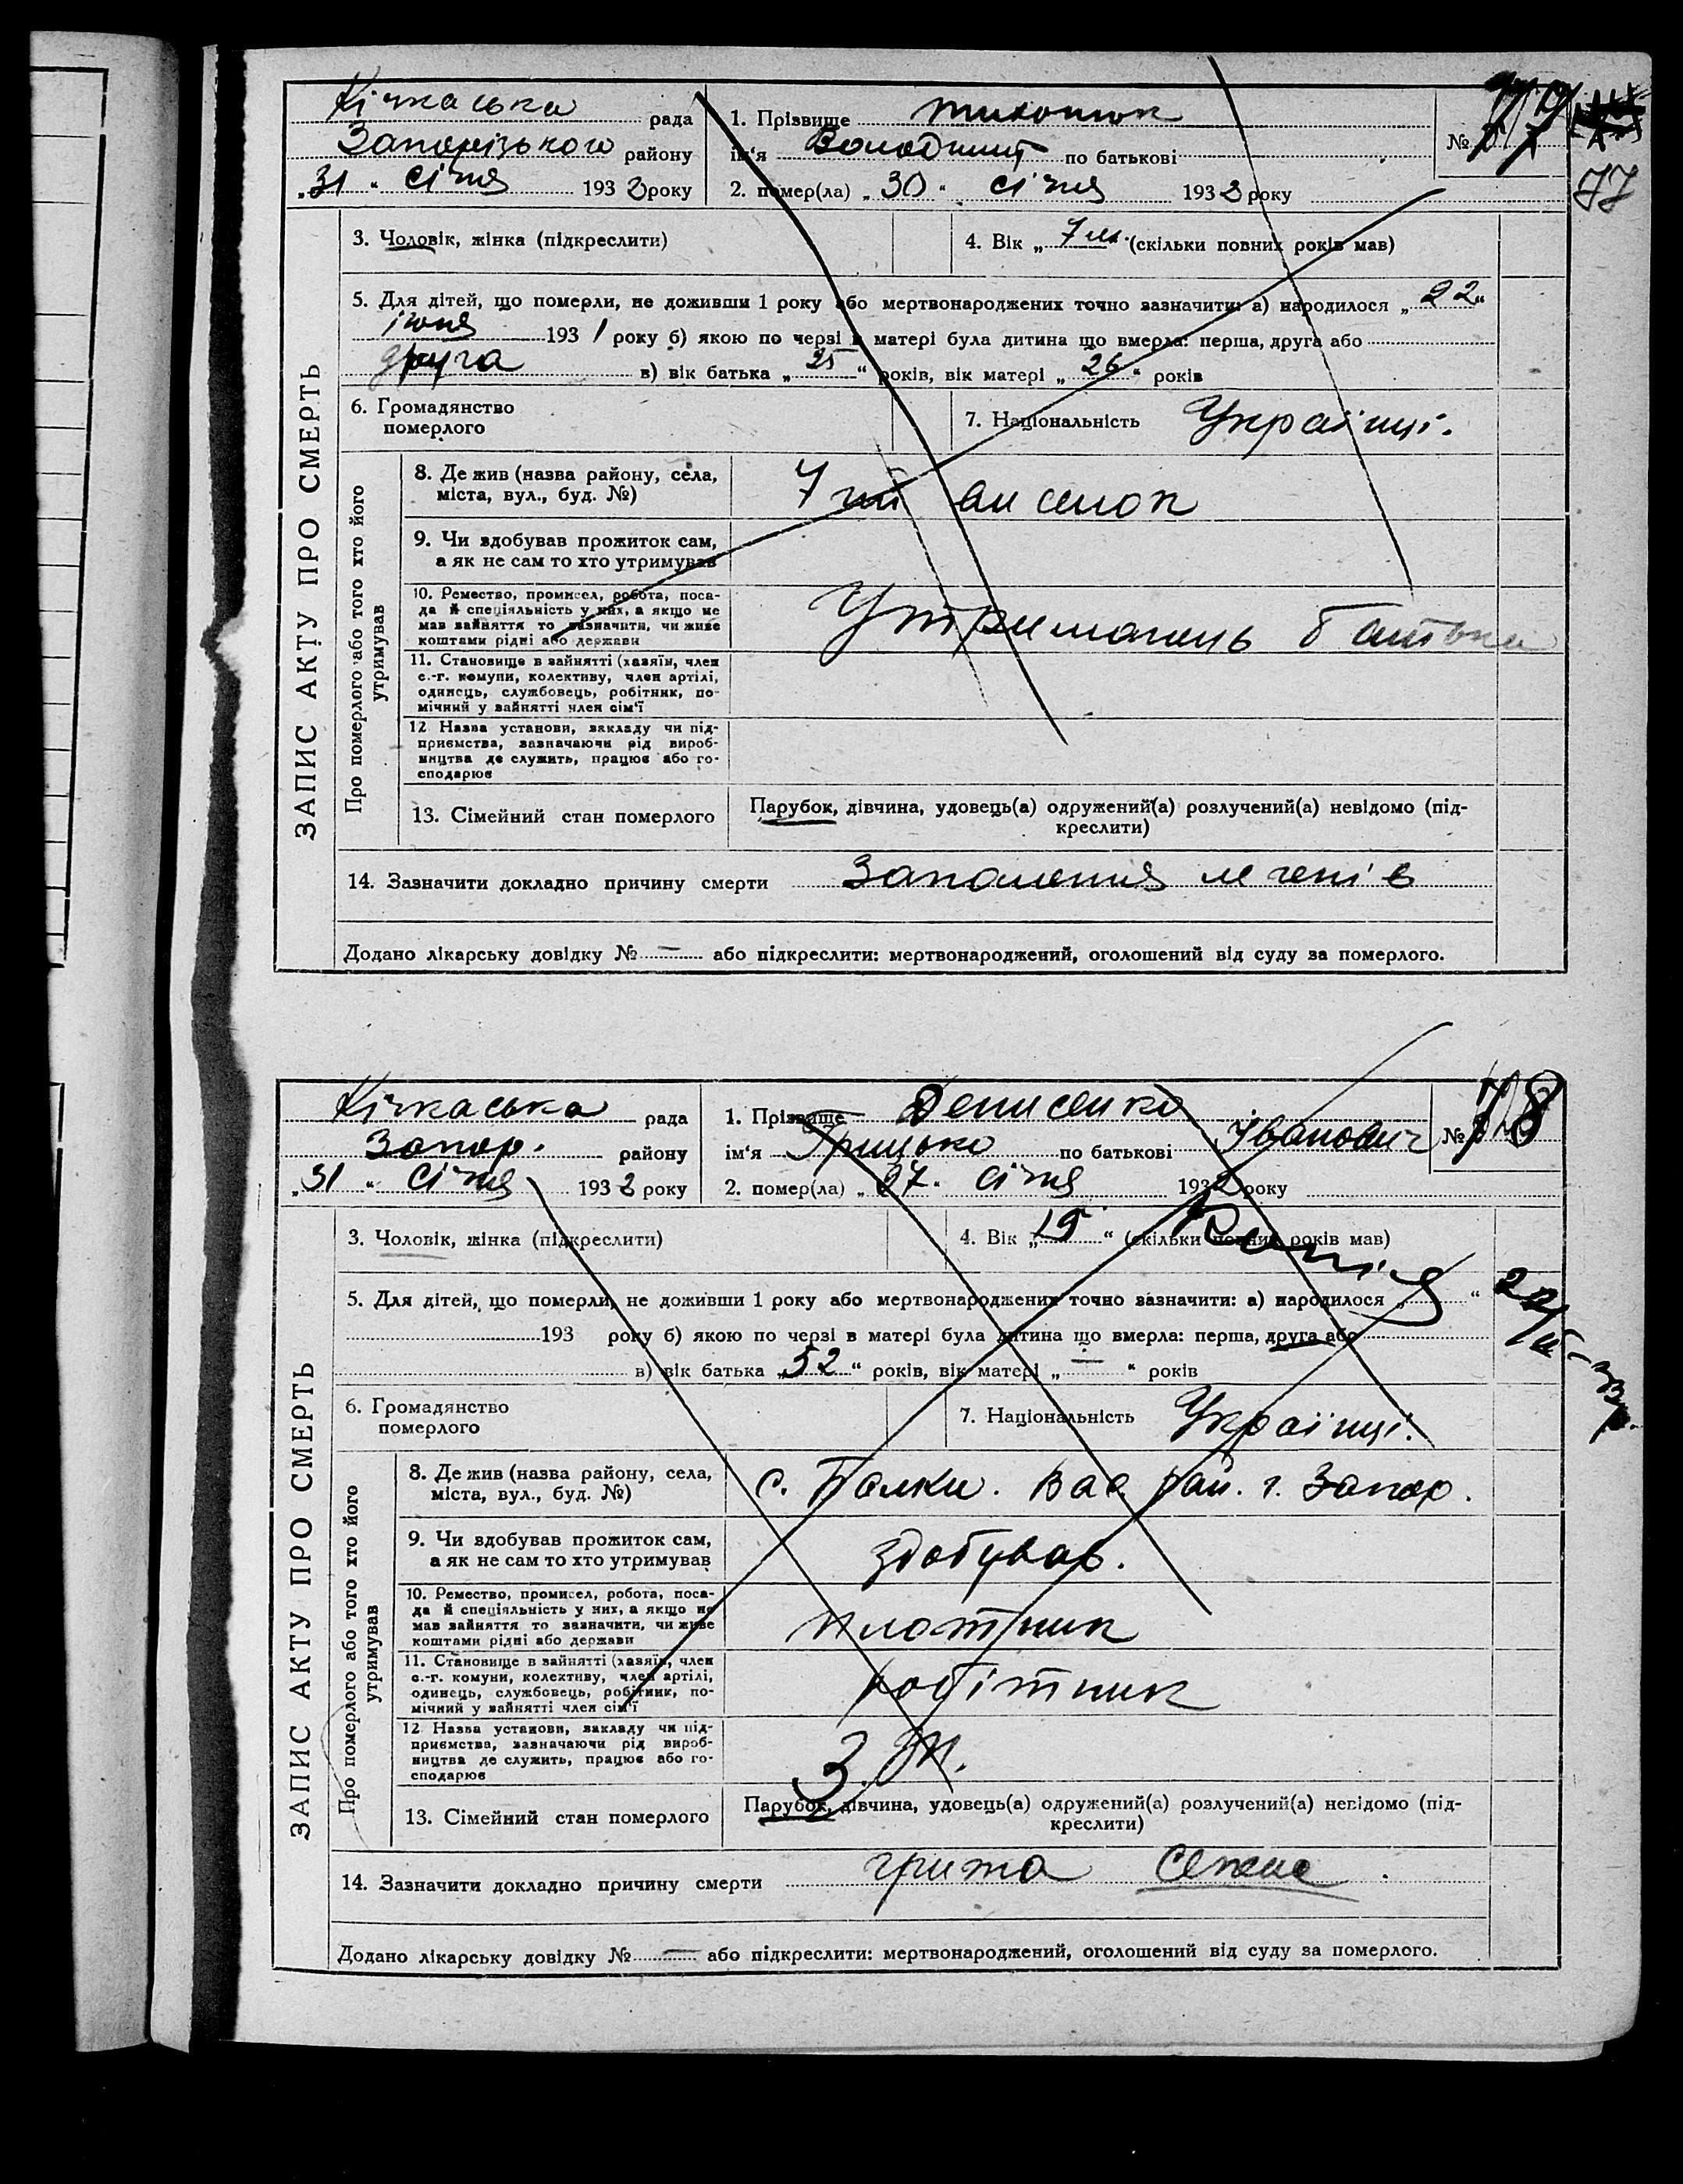 ЗАПИС АКТУ ПРО СМЕРТЬ
Кічкаська рада
Запорізького району
„31“ січня 1932 року
1. Прізвище Тихонюк
ім'я Володимир по батькові
№ 77
77
2. помер(ла) „30“ січня 1932 року
3. Чоловік, жінка (підкреслити)
4. Вік „7 м.“ (скільки повних років мав)
5. Для дітей, що померли, не доживши 1 року або мертвонароджених точно зазначити: а) народилося „22“
июня 1931 року б) якою по черзі в матері була дитина що вмерла: перша, друга або
друга в) вік батька „25“ років, вік матері „26“ років
6. Громадянство
померлого
7. Національність Україн.
Про померлого або того хто його
утримував
8. Де жив (назва району, села,
міста, вул., буд. №)
7 ий виселок
9. Чи здобував прожиток сам,
а як не сам то хто утримував
10. Ремество, промисел, робота, поса-
да й спеціяльність у них, а якщо не
мав зайняття то зазначити, чи живе
коштами рідні або держави
Утриманець батька
11. Становище в зайнятті (хазяїн, член
с.-г. комуни, колективу, член артілі,
одинець, службовець, робітник, по-
мічний у зайнятті член сім'ї
12 Назва установи, закладу чи під-
приємства, зазначаючи рід вироб-
ництва де служить, працює або го-
сподарює
13. Сімейний стан померлого
Парубок, дівчина, удовець(а) одружений(а) розлучений(а) невідомо (під-
креслити)
14. Зазначити докладно причину смерти Запалення легенів
Додано лікарську довідку № — або підкреслити: мертвонароджений, оголошений від суду за померлого.
ЗАПИС АКТУ ПРО СМЕРТЬ
Кічкаська рада
Запор. району
„31“ січня 1932 року
1. Прізвище Денисенко
ім'я Грицько по батькові Іванович
№ 78
2. помер(ла) „27“ січня 1932 року
3. Чоловік, жінка (підкреслити)
4. Вік „19“ (скільки повних років мав)
5. Для дітей, що померли, не доживши 1 року або мертвонароджених точно зазначити: а) народилося „ “
193 року б) якою по черзі в матері була дитина що вмерла: перша, друга або
в) вік батька „52“ років, вік матері „—“ років
6. Громадянство
померлого
7. Національність Україн.
Про померлого або того хто його
утримував
8. Де жив (назва району, села,
міста, вул., буд. №)
с. Балки. Вас рай. г. Запор.
9. Чи здобував прожиток сам,
а як не сам то хто утримував
здобував.
10. Ремество, промисел, робота, поса-
да й спеціяльність у них, а якщо не
мав зайняття то зазначити, чи живе
коштами рідні або держави
плотник
11. Становище в зайнятті (хазяїн, член
с.-г. комуни, колективу, член артілі,
одинець, службовець, робітник, по-
мічний у зайнятті член сім'ї
робітник
12 Назва установи, закладу чи під-
приємства, зазначаючи рід вироб-
ництва де служить, працює або го-
сподарює
13. Сімейний стан померлого
Парубок, дівчина, удовець(а) одружений(а) розлучений(а) невідомо (під-
креслити)
14. Зазначити докладно причину смерти грижа
Додано лікарську довідку № — або підкреслити: мертвонароджений, оголошений від суду за померлого.